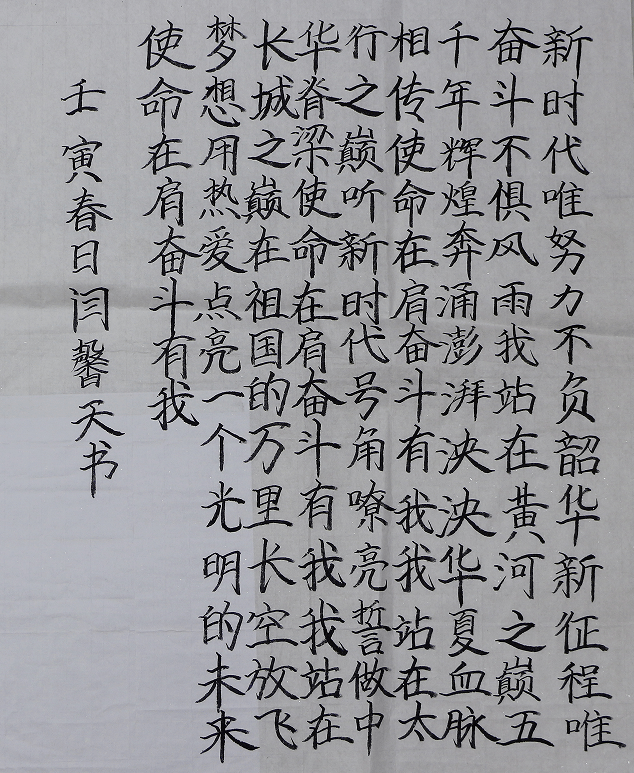 新时代唯努力不负韶华新征程唯
奋斗不惧风雨我站在黄河之巅五
千年辉煌奔涌澎湃泱泱华夏血脉
相传使命在肩奋斗有我我站在太
行之巅听新时代号角嘹亮誓做中
华脊梁使命在肩奋斗有我我站在
长城之巅在祖国的万里长空放飞
梦想用热爱点亮一个光明的未来
使命在肩奋斗有我
壬寅春日闫馨天书